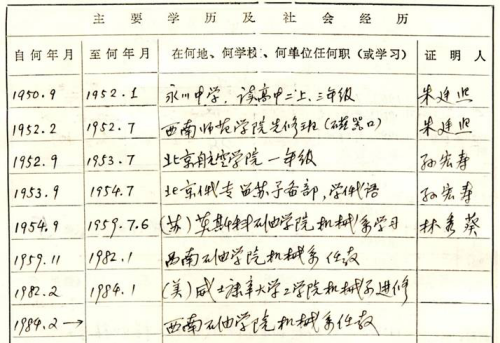 主要学历及社会经历
自何年月 至何年月 在何地、何学校、何单位任何职（或学习） 证明人
1950.9 1952.1 永川中学，读高中二上、三年级 朱廷熙
1952.2 1952.7 西南师范学院先修班（磁器口） 朱廷熙
1952.9 1953.7 北京航空学院一年级 孙宏寿
1953.9 1954.7 北京俄专留苏予备部，学俄语 孙宏寿
1954.9 1959.7.6 （苏）莫斯科石油学院机械系学习 林秀葵
1959.11 1982.1 西南石油学院机械系任教
1982.2 1984.1 （美）威士康辛大学工学院机械系进修
1984.2→ 西南石油学院机械系任教